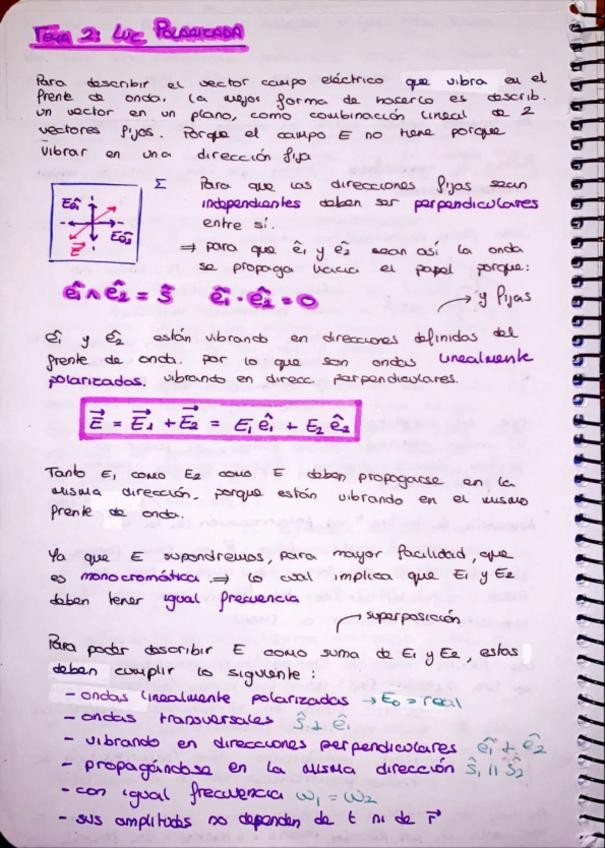 TEMA 2: LUZ POLARIZADA
Para describir el vector campo eléctrico que vibra en el
frente de onda. La mejor forma de hacerlo es describ.
un vector en un plano, como combinación lineal de 2
vectores fijos. Porque el campo E no tiene porque
vibrar en una dirección fija
Σ
Para que las direcciones fijas sean
independientes deben ser perpendiculares
entre sí.
⇒ para que ê₁ y ê₂ sean así la onda
se propaga hacia el papel porque:
ê₁ ∧ ê₂ = ŝ ê₁ · ê₂ = 0
→ y fijas
ê₁ y ê₂ están vibrando en direcciones definidas del
frente de onda. por lo que son ondas linealmente
polarizadas. vibrando en direcc perpendiculares.
E⃗ = E⃗₁ + E⃗₂ = E₁ ê₁ + E₂ ê₂
Tanto E₁ como E₂ como E deben propagarse en la
misma dirección. porque están vibrando en el mismo
frente de onda.
Ya que E supondremos, para mayor facilidad, que
es monocromática ⇒ lo cual implica que E₁ y E₂
deben tener igual frecuencia
→ superposición
Para poder describir E como suma de E₁ y E₂, estas
deben cumplir lo siguiente:
- ondas linealmente polarizadas → E₀ = real
- ondas transversales ŝ ⊥ ê₁
- vibrando en direcciones perpendiculares ê₁ ⊥ ê₂
- propagándose en la misma dirección ŝ₁ || ŝ₂
- con igual frecuencia ω₁ = ω₂
- sus amplitudes no dependen de t ni de r⃗